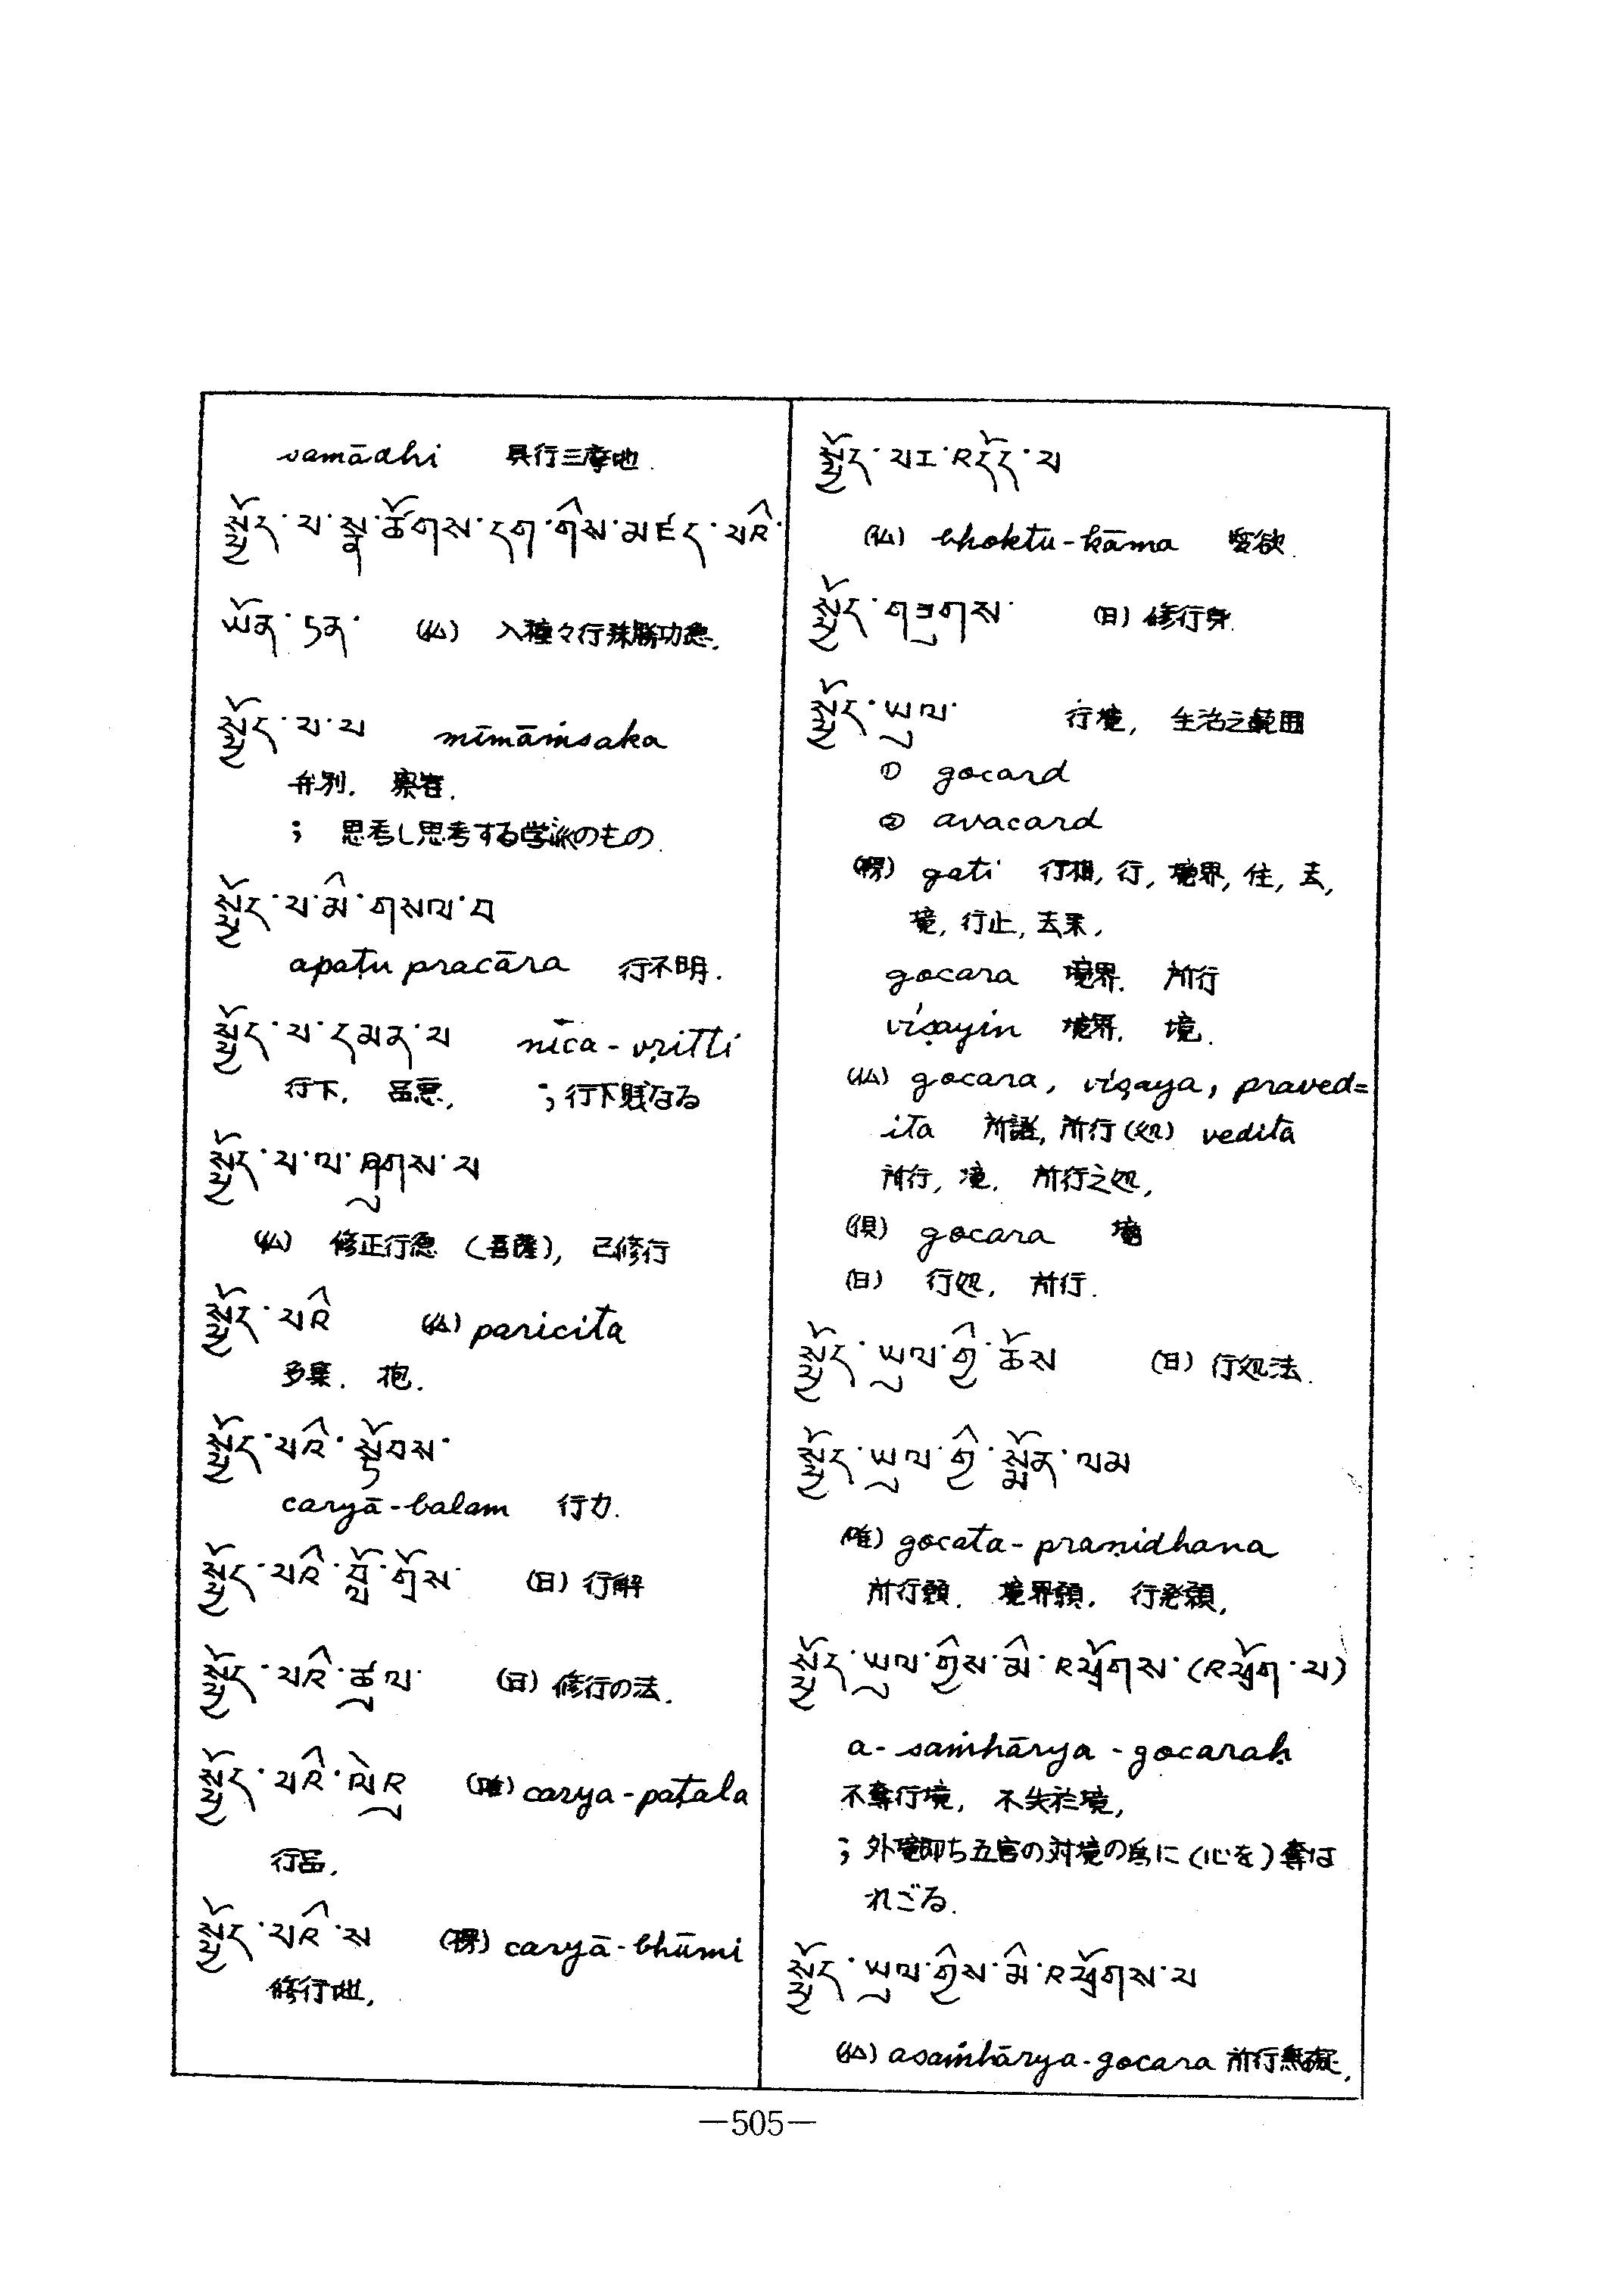 samādhi 具行三摩地.
སྤྱོད་པ་སྣ་ཚོགས་དག་གིས་མཛད་པའི་
ཡོན་ཏན་ (仏) 入種々行殊勝功徳.
སྤྱོད་པ་པ mīmāṁsaka
弁別. 察者.
; 思考し思考する学派のもの.
སྤྱོད་པ་མི་གསལ་བ
apaṭu pracāra 行不明.
སྤྱོད་པ་དམན་པ nīca - vṛitti
行下, 呂悪, ; 行下賎なる
སྤྱོད་པ་ལ་ཞུགས་པ
(仏) 修正行徳 (菩薩), 已修行
སྤྱོད་པའི (仏) paricita
多集. 抱.
སྤྱོད་པའི་སྟོབས་
caryā - balam 行力.
སྤྱོད་པའི་བློ་གྲོས་ (日) 行解
སྤྱོད་པའི་ཚུལ་ (日) 修行の法.
སྤྱོད་པའི་ལེའུ (唯) carya - paṭala
行品,
སྤྱོད་པའི་ས (梻) caryā - bhūmi
修行地,
སྤྱོད་པར་འདོད་པ
(仏) bhoktu - kāma 愛欲.
སྤྱོད་གཟུགས་ (日) 修行身.
སྤྱོད་ཡུལ་ 行境, 生活之範囲
① gocard
② avacard
gati 行相, 行, 境界, 住, 去,
境, 行止, 去来,
gocara 境界. 所行
viṣayin 境界. 境.
(仏) gocara, viṣaya, praved=
ita 所識, 所行 (処) vedita
所行, 境. 所行之処,
(倶) gocara 境
(日) 行処, 所行.
སྤྱོད་ཡུལ་གྱི་ཆོས (日) 行処法.
སྤྱོད་ཡུལ་གྱི་སྨོན་ལམ
(唯) gocata - praṇidhana
所行願. 境界願. 行処願,
སྤྱོད་ཡུལ་གྱིས་མི་འཕྲོགས་ (འཕྲོག་པ)
a - saṁhārya - gocaraḥ
不奪行境, 不失於境,
; 外境即ち五官の対境の為に (心を) 奪は
れざる.
སྤྱོད་ཡུལ་གྱིས་མི་འཕྲོགས་པ
(仏) asaṁhārya - gocara 所行無礙,
—505—